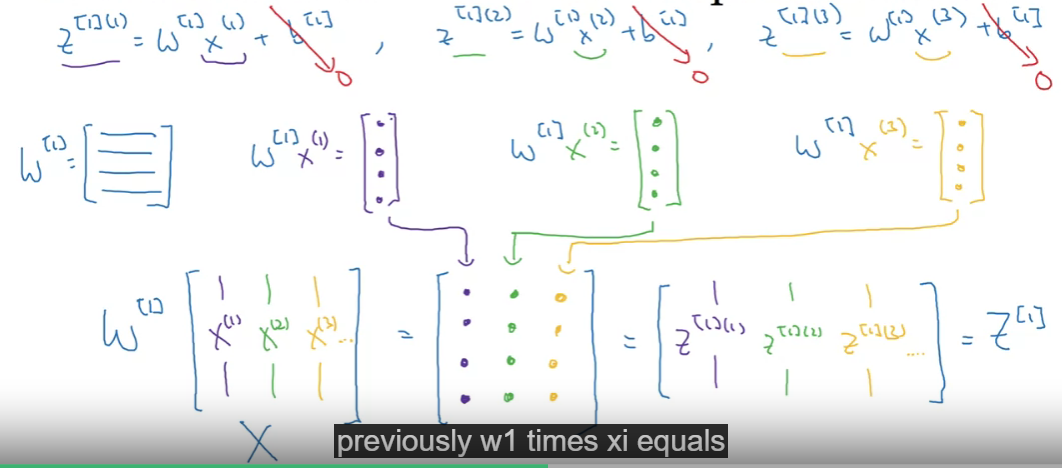 z^{[1](1)} = W^{[1]} x^{(1)} + b^{[1]} , z^{[1](2)} = W^{[1]} x^{(2)} + b^{[1]} , z^{[1](3)} = W^{[1]} x^{(3)} + b^{[1]}
0 0 0
W^{[1]} = W^{[1]} x^{(1)} = W^{[1]} x^{(2)} = W^{[1]} x^{(3)} =
W^{[1]} [ x^{(1)} x^{(2)} x^{(3)} ... ] = = [ z^{[1](1)} z^{[1](2)} z^{[1](3)} .... ] = Z^{[1]}
X
previously w1 times xi equals